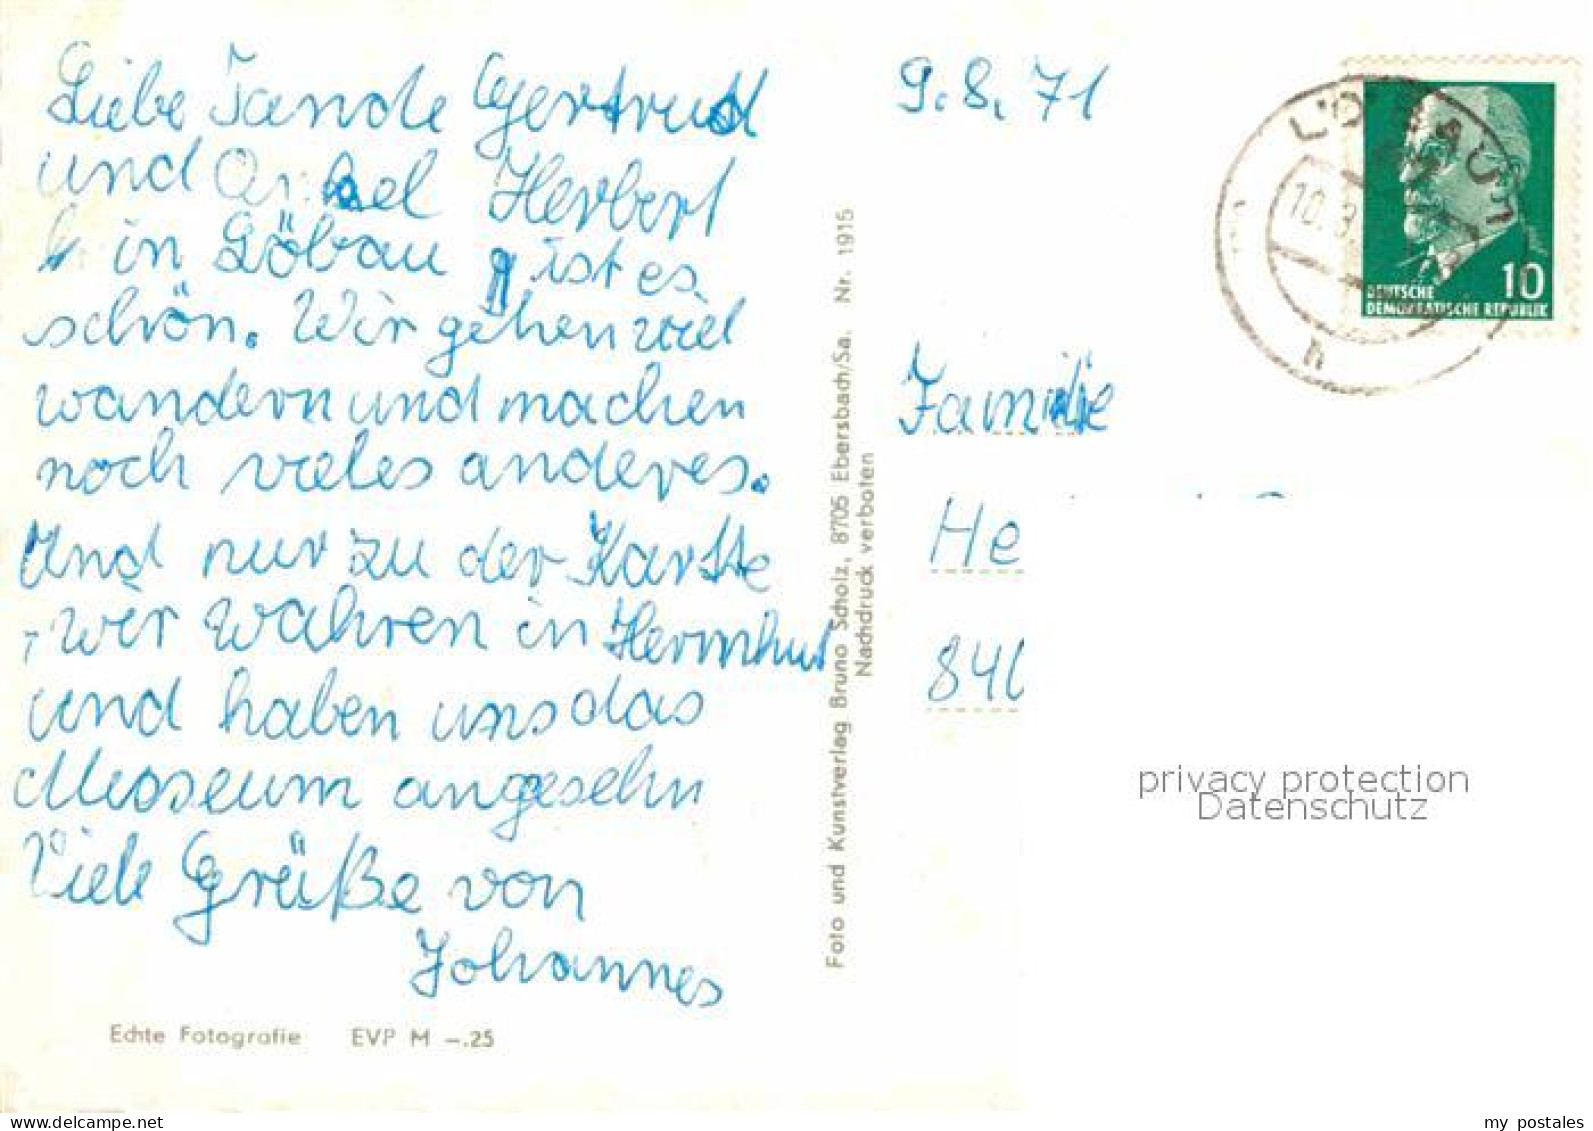 Liebe Tande Gertrud
und Onkel Herbert
in Löbau ist es
schön. Wir gehen viel
wandern und machen
noch vieles anderes.
Und nur zu der Kartte
, wir wahren in Hermhut
und haben uns das
Musseum angesehn
Viele Grüße von
Johannes
Echte Fotografie EVP M –.25
Foto und Kunstverlag Bruno Scholz, 8705 Ebersbach/Sa. Nr. 1915
Nachdruck verboten
9. 8. 71
LÖBAU
10.
h
10
DEUTSCHE
DEMOKRATISCHE REPUBLIK
Familie
He
840
privacy protection
Datenschutz
my postales